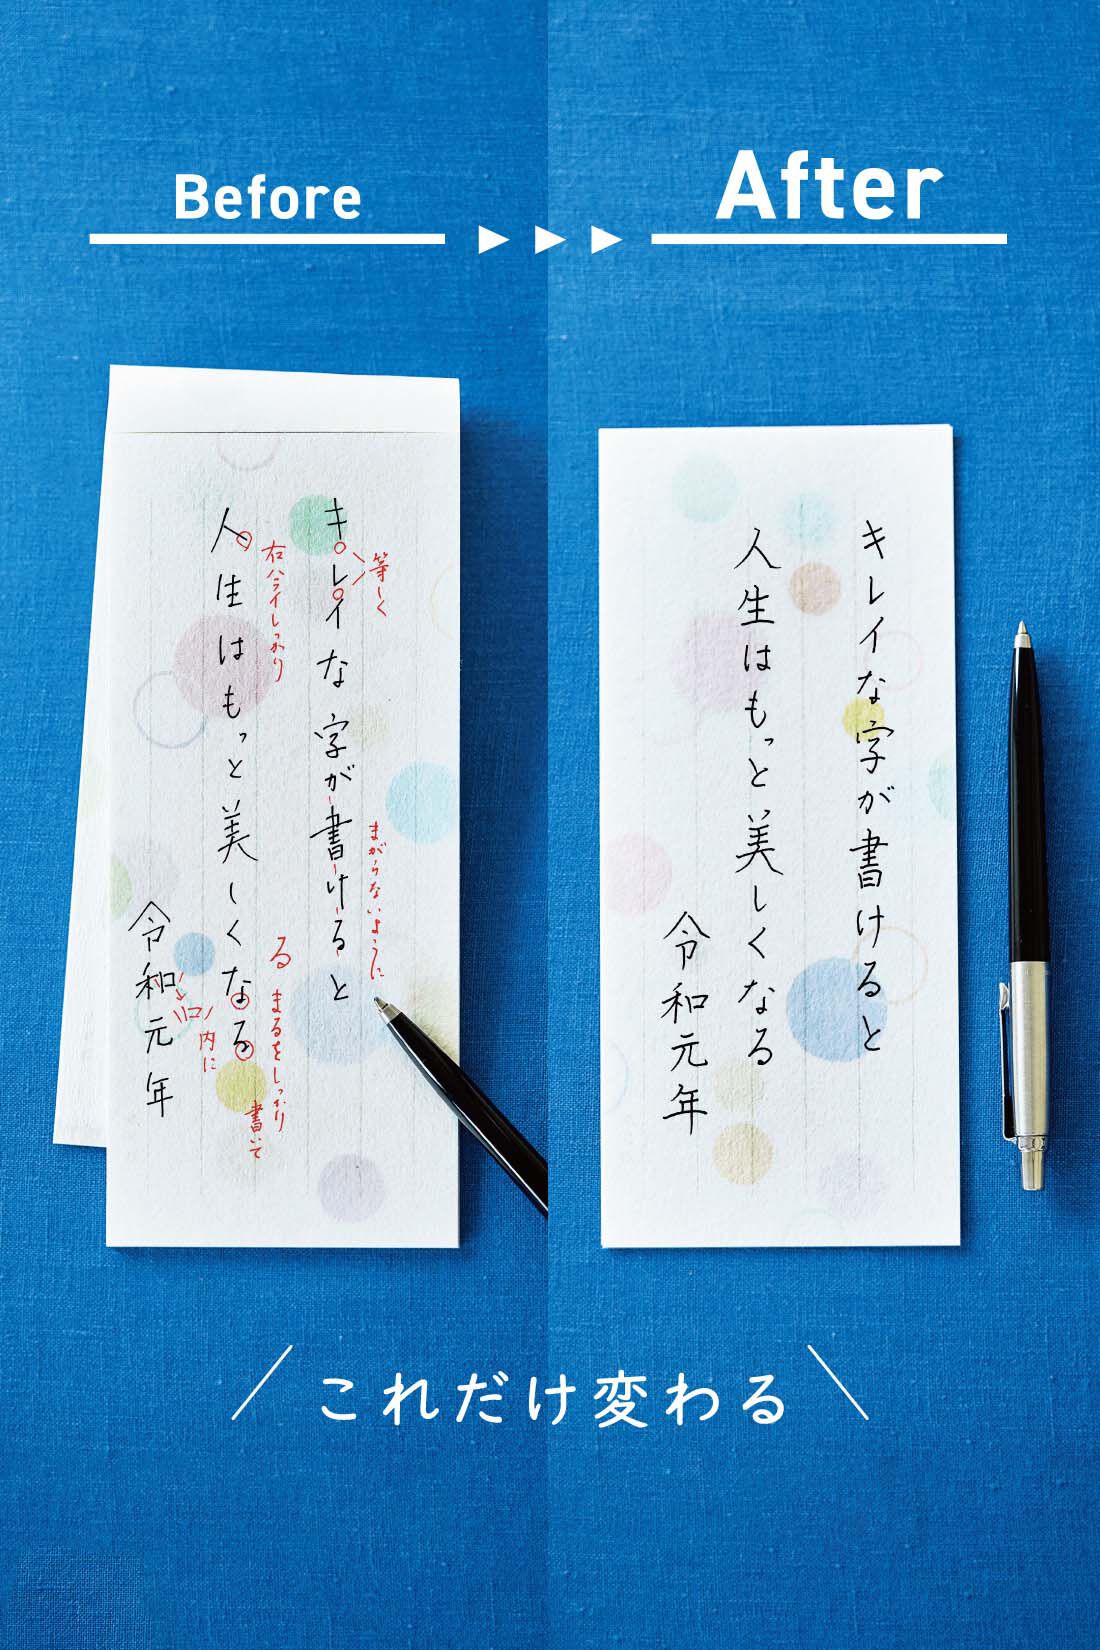 Before
After
キレイな字が書けると
人生はもっと美しくなる
令和元年
等しく
右ハライしっかり
まがらないように
る まるをしっかり
書いて
内に
キレイな字が書けると
人生はもっと美しくなる
令和元年
これだけ変わる